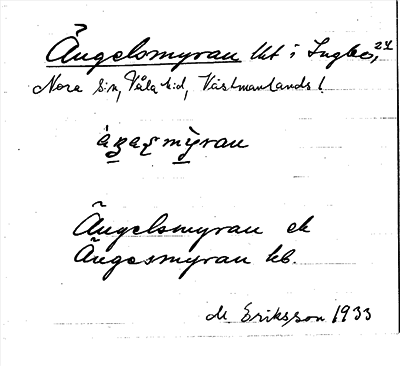 Ängelsmyran lht i Ingbo, 24
Nora sn, Våla hd, Västmanlands l
Ängelsmyran ek
Ängesmyran kb.
M Eriksson 1933